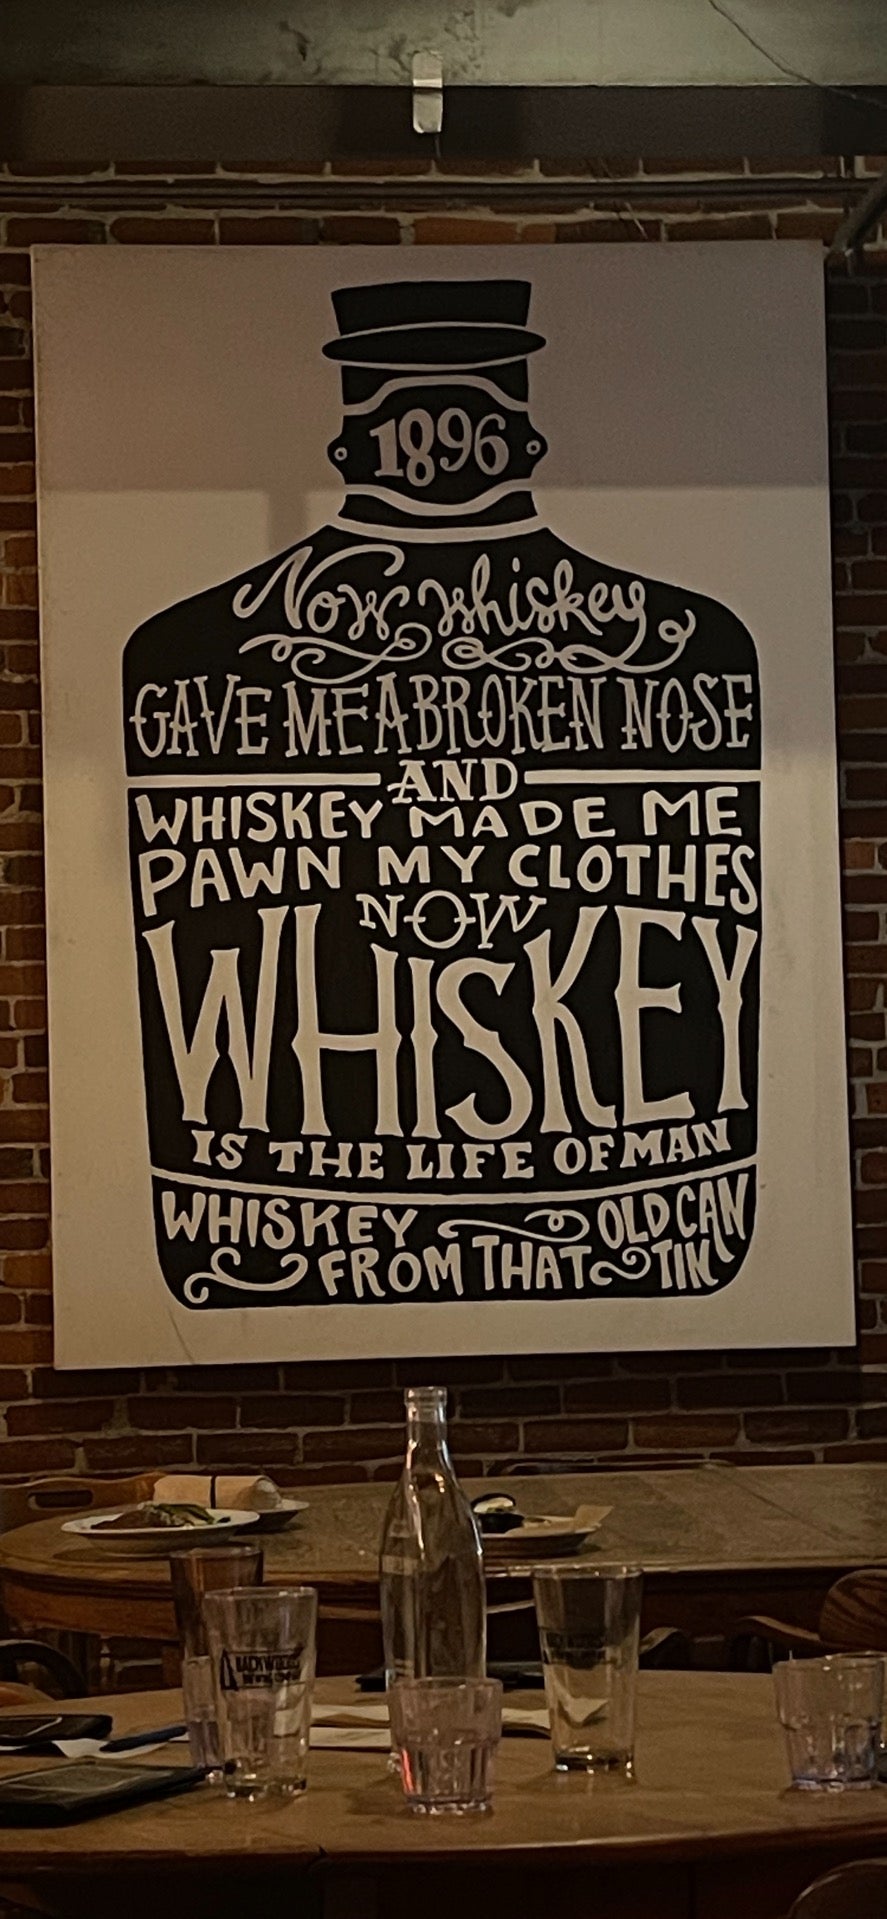 1896
Now whiskey
GAVE ME A BROKEN NOSE
AND
WHISKEY MADE ME
PAWN MY CLOTHES
NOW
WHISKEY
IS THE LIFE OF MAN
WHISKEY OLD CAN
FROM THAT TIN
BACKWOODS